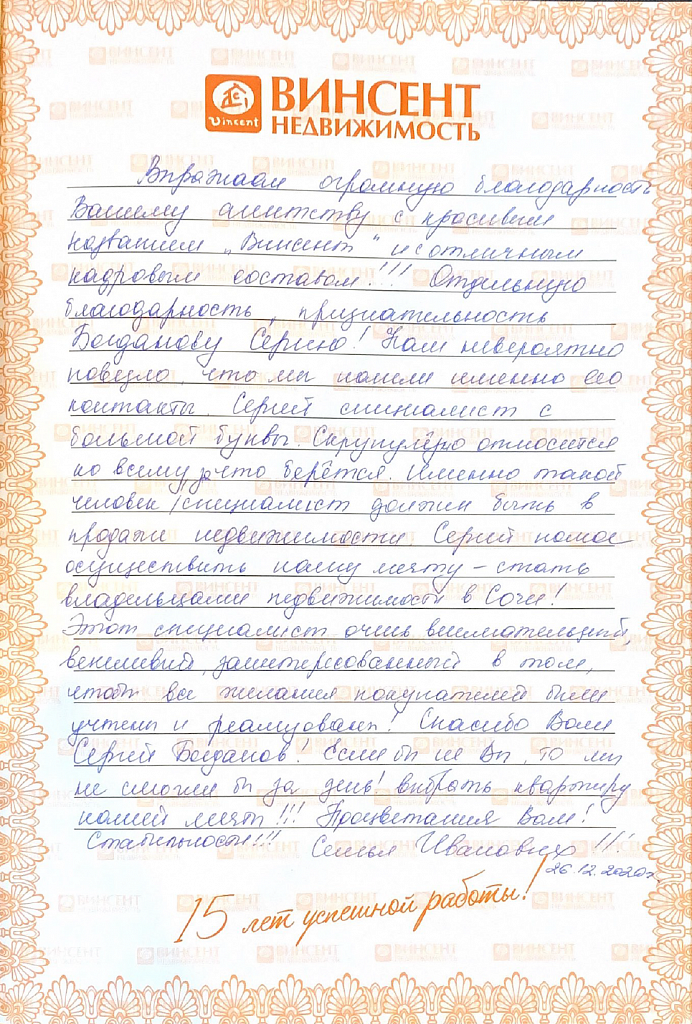 Vincent
ВИНСЕНТ
НЕДВИЖИМОСТЬ
Выражаем огромную благодарность
Вашему агентству с красивым
названием „Винсент“ и с отличным
кадровым составом!!! Отдельную
благодарность, признательность
Богданову Сергею! Нам невероятно
повезло, что мы нашли именно его
контакты. Сергей специалист с
большой буквы. Скрупулёзно относится
ко всему, за что берётся. Именно такой
человек/специалист должен быть в
продаже недвижимости. Сергей помог
осуществить нашу мечту – стать
владельцами недвижимости в Сочи!
Этот специалист очень внимательный,
вежливый, заинтересованный в том,
чтобы все желания покупателей были
учтены и реализованы! Спасибо Вам
Сергей Богданов! Если бы не Вы, то мы
не смогли бы за день! выбрать квартиру
нашей мечты!!! Процветания Вам!
Стабильности!!! Семья Ивановых!!!
26.12.2020г
15 лет успешной работы!